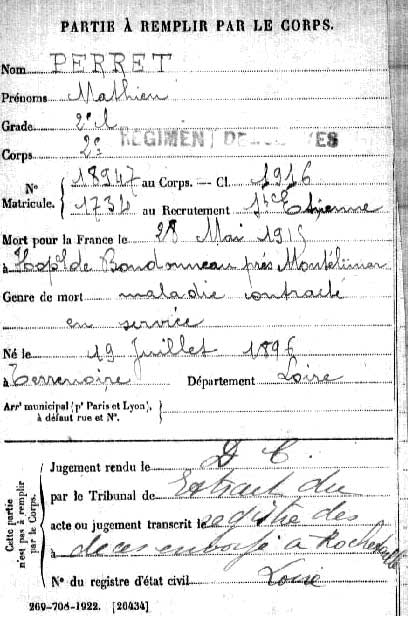 PARTIE À REMPLIR PAR LE CORPS.
Nom PERRET
Prénoms Mathieu
Grade 2e
Corps 2e RÉGIMENT DE
N° Matricule. 18947 au Corps. — Cl. 1916
1734 au Recrutement St Etienne
Mort pour la France le 28 Mai 1915
à Hopl de Bondonneau près Montélimar
Genre de mort maladie contracté
en service
Né le 19 Juillet 1896
à Terrenoire Département Loire
Arrt municipal (pr Paris et Lyon), à défaut rue et N°.
Cette partie n'est pas à remplir par le Corps.
Jugement rendu le D C.
par le Tribunal de Extrait du
acte ou jugement transcrit le registre des
à deces envoyé a
N° du registre d'état civil Loire
269-708-1922. [26434]